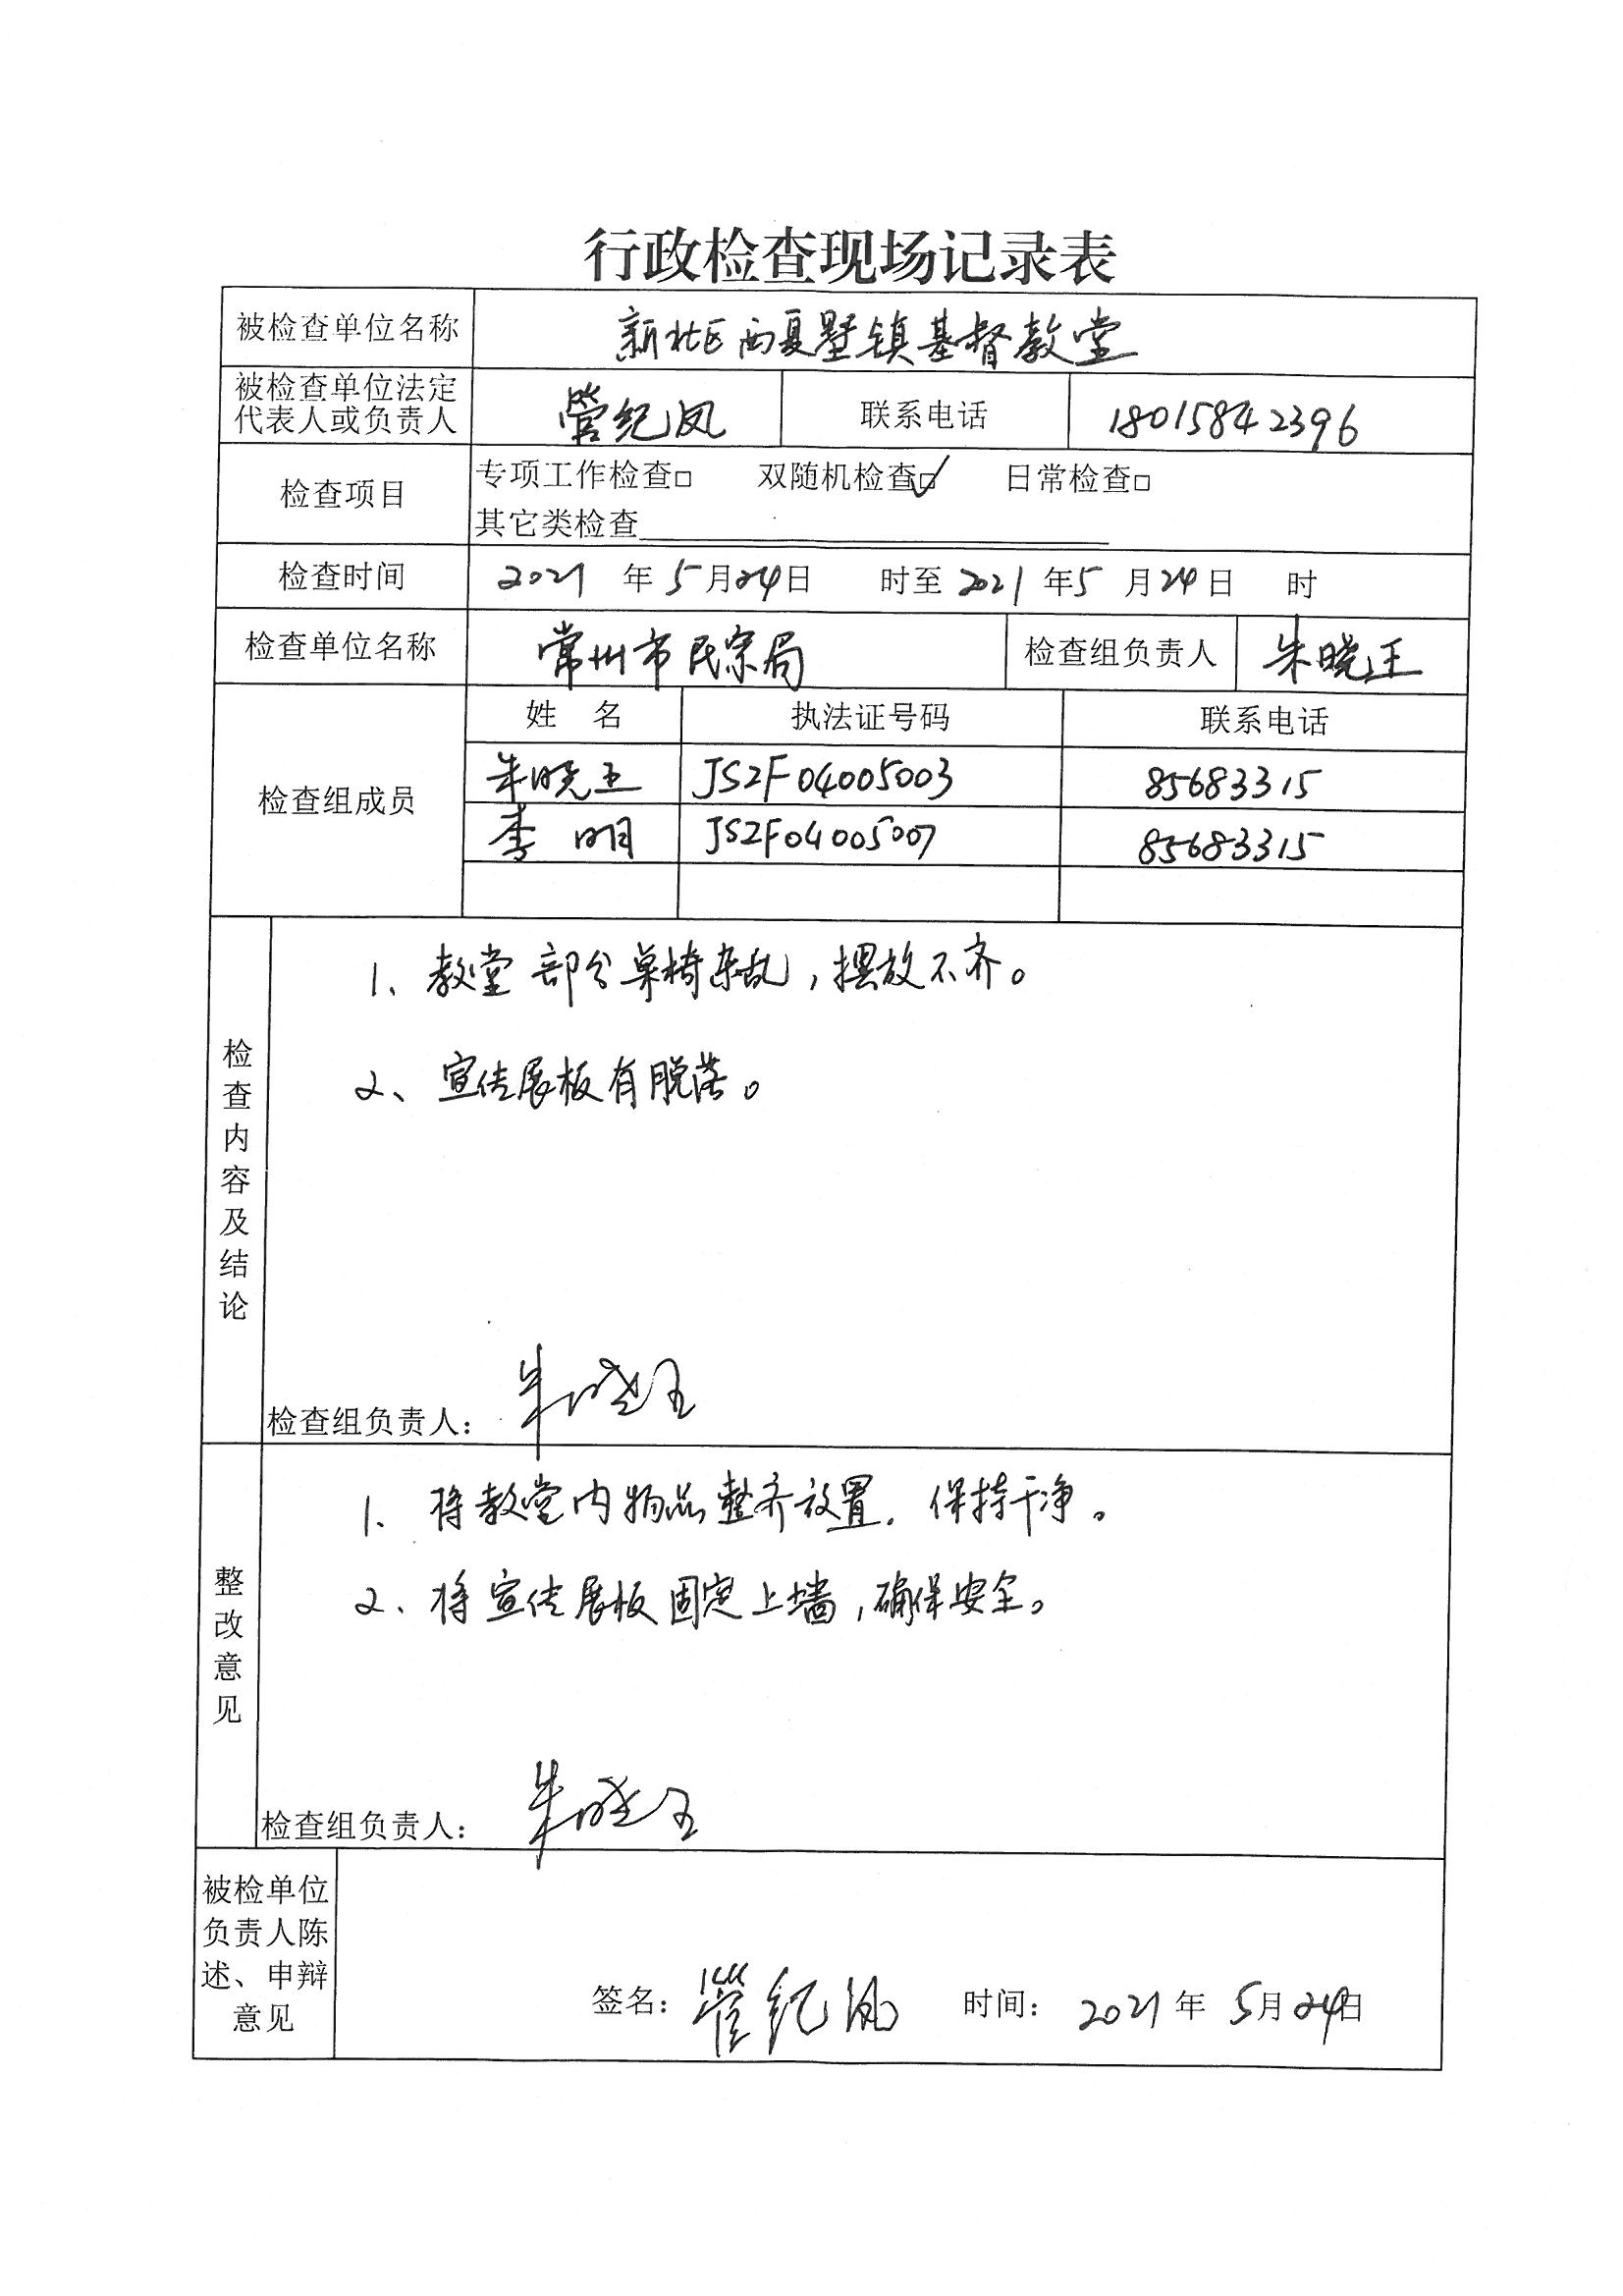 行政检查现场记录表
被检查单位名称 新北区西夏墅镇基督教堂
被检查单位法定
代表人或负责人 管纪凤 联系电话 18015842396
检查项目 专项工作检查□ 双随机检查□✓ 日常检查□
其它类检查
检查时间 2021 年 5 月 24 日 时至 2021 年 5 月 24 日 时
检查单位名称 常州市民宗局 检查组负责人 朱晓玉
检查组成员 姓 名 执法证号码 联系电话
朱晓玉 JSZF04005003 85683315
李 明 JSZF04005007 85683315
检查内容及结论
1、教堂部分桌椅杂乱,摆放不齐。
2、宣传展板有脱落。
检查组负责人: 朱晓玉
整改意见
1、将教堂内物品整齐放置,保持干净。
2、将宣传展板固定上墙,确保安全。
检查组负责人: 朱晓玉
被检单位
负责人陈
述、申辩
意见
签名: 管纪凤 时间: 2021 年 5 月 24 日